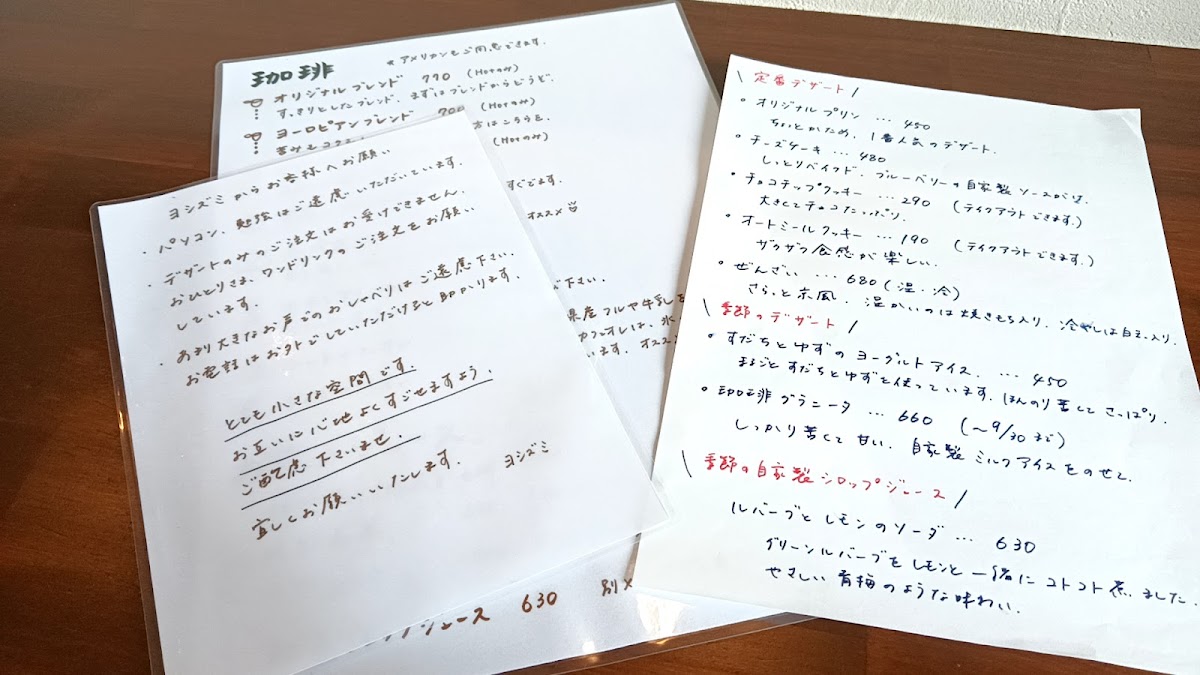 珈琲
* アメリカンもご用意できます.
オリジナルブレンド 770 (Hotのみ)
すっきりとしたブレンド. まずはブレンドからどうぞ.
ヨーロピアンブレンド 700 (Hotのみ)
苦みと
方はこちらを.
(Hotのみ)
すぐでます.
オススメ
下さい.
県産フルや牛乳を
カフェオレは、氷
います. オススメ
ジュース 630 別
ヨシズミからお客様へお願い
・パソコン、勉強はご遠慮いただいています.
・デザートのみのご注文はお受けできません.
おひとりさま、ワンドリンクのご注文をお願い
しています.
・あまり大きなお声でのおしゃべりはご遠慮下さい.
お電話はお外でしていただけると助かります.
とても小さな空間です.
お互いに心地よくすごせますよう.
ご配慮下さいませ.
宜しくお願いいたします. ヨシズミ
\ 定番デザート /
° オリジナルプリン … 450
ちょっとかため. 1番人気のデザート.
° チーズケーキ … 480
しっとりベイクド. ブルーベリーの自家製ソースがけ.
° チョコチップクッキー … 290 (テイクアウトできます.)
大きくてチョコたっぷり.
° オートミールクッキー … 190 (テイクアウトできます.)
ザクザク食感が楽しい.
° ぜんざい … 680 (温・冷)
さらっと京風. 温かいのは焼きもち入り. 冷やしは白玉入り.
\ 季節のデザート /
° すだちとゆずのヨーグルトアイス. … 450
まるごとすだちとゆずを使っています. ほんのり苦くてさっぱり.
° 珈琲グラニータ … 660 (〜9/30まで)
しっかり苦くて甘い. 自家製ミルクアイスをのせて
\ 季節の自家製シロップジュース /
ルバーブとレモンのソーダ … 630
グリーンルバーブをレモンと一緒にコトコト煮ました.
やさしい青梅のような味わい.